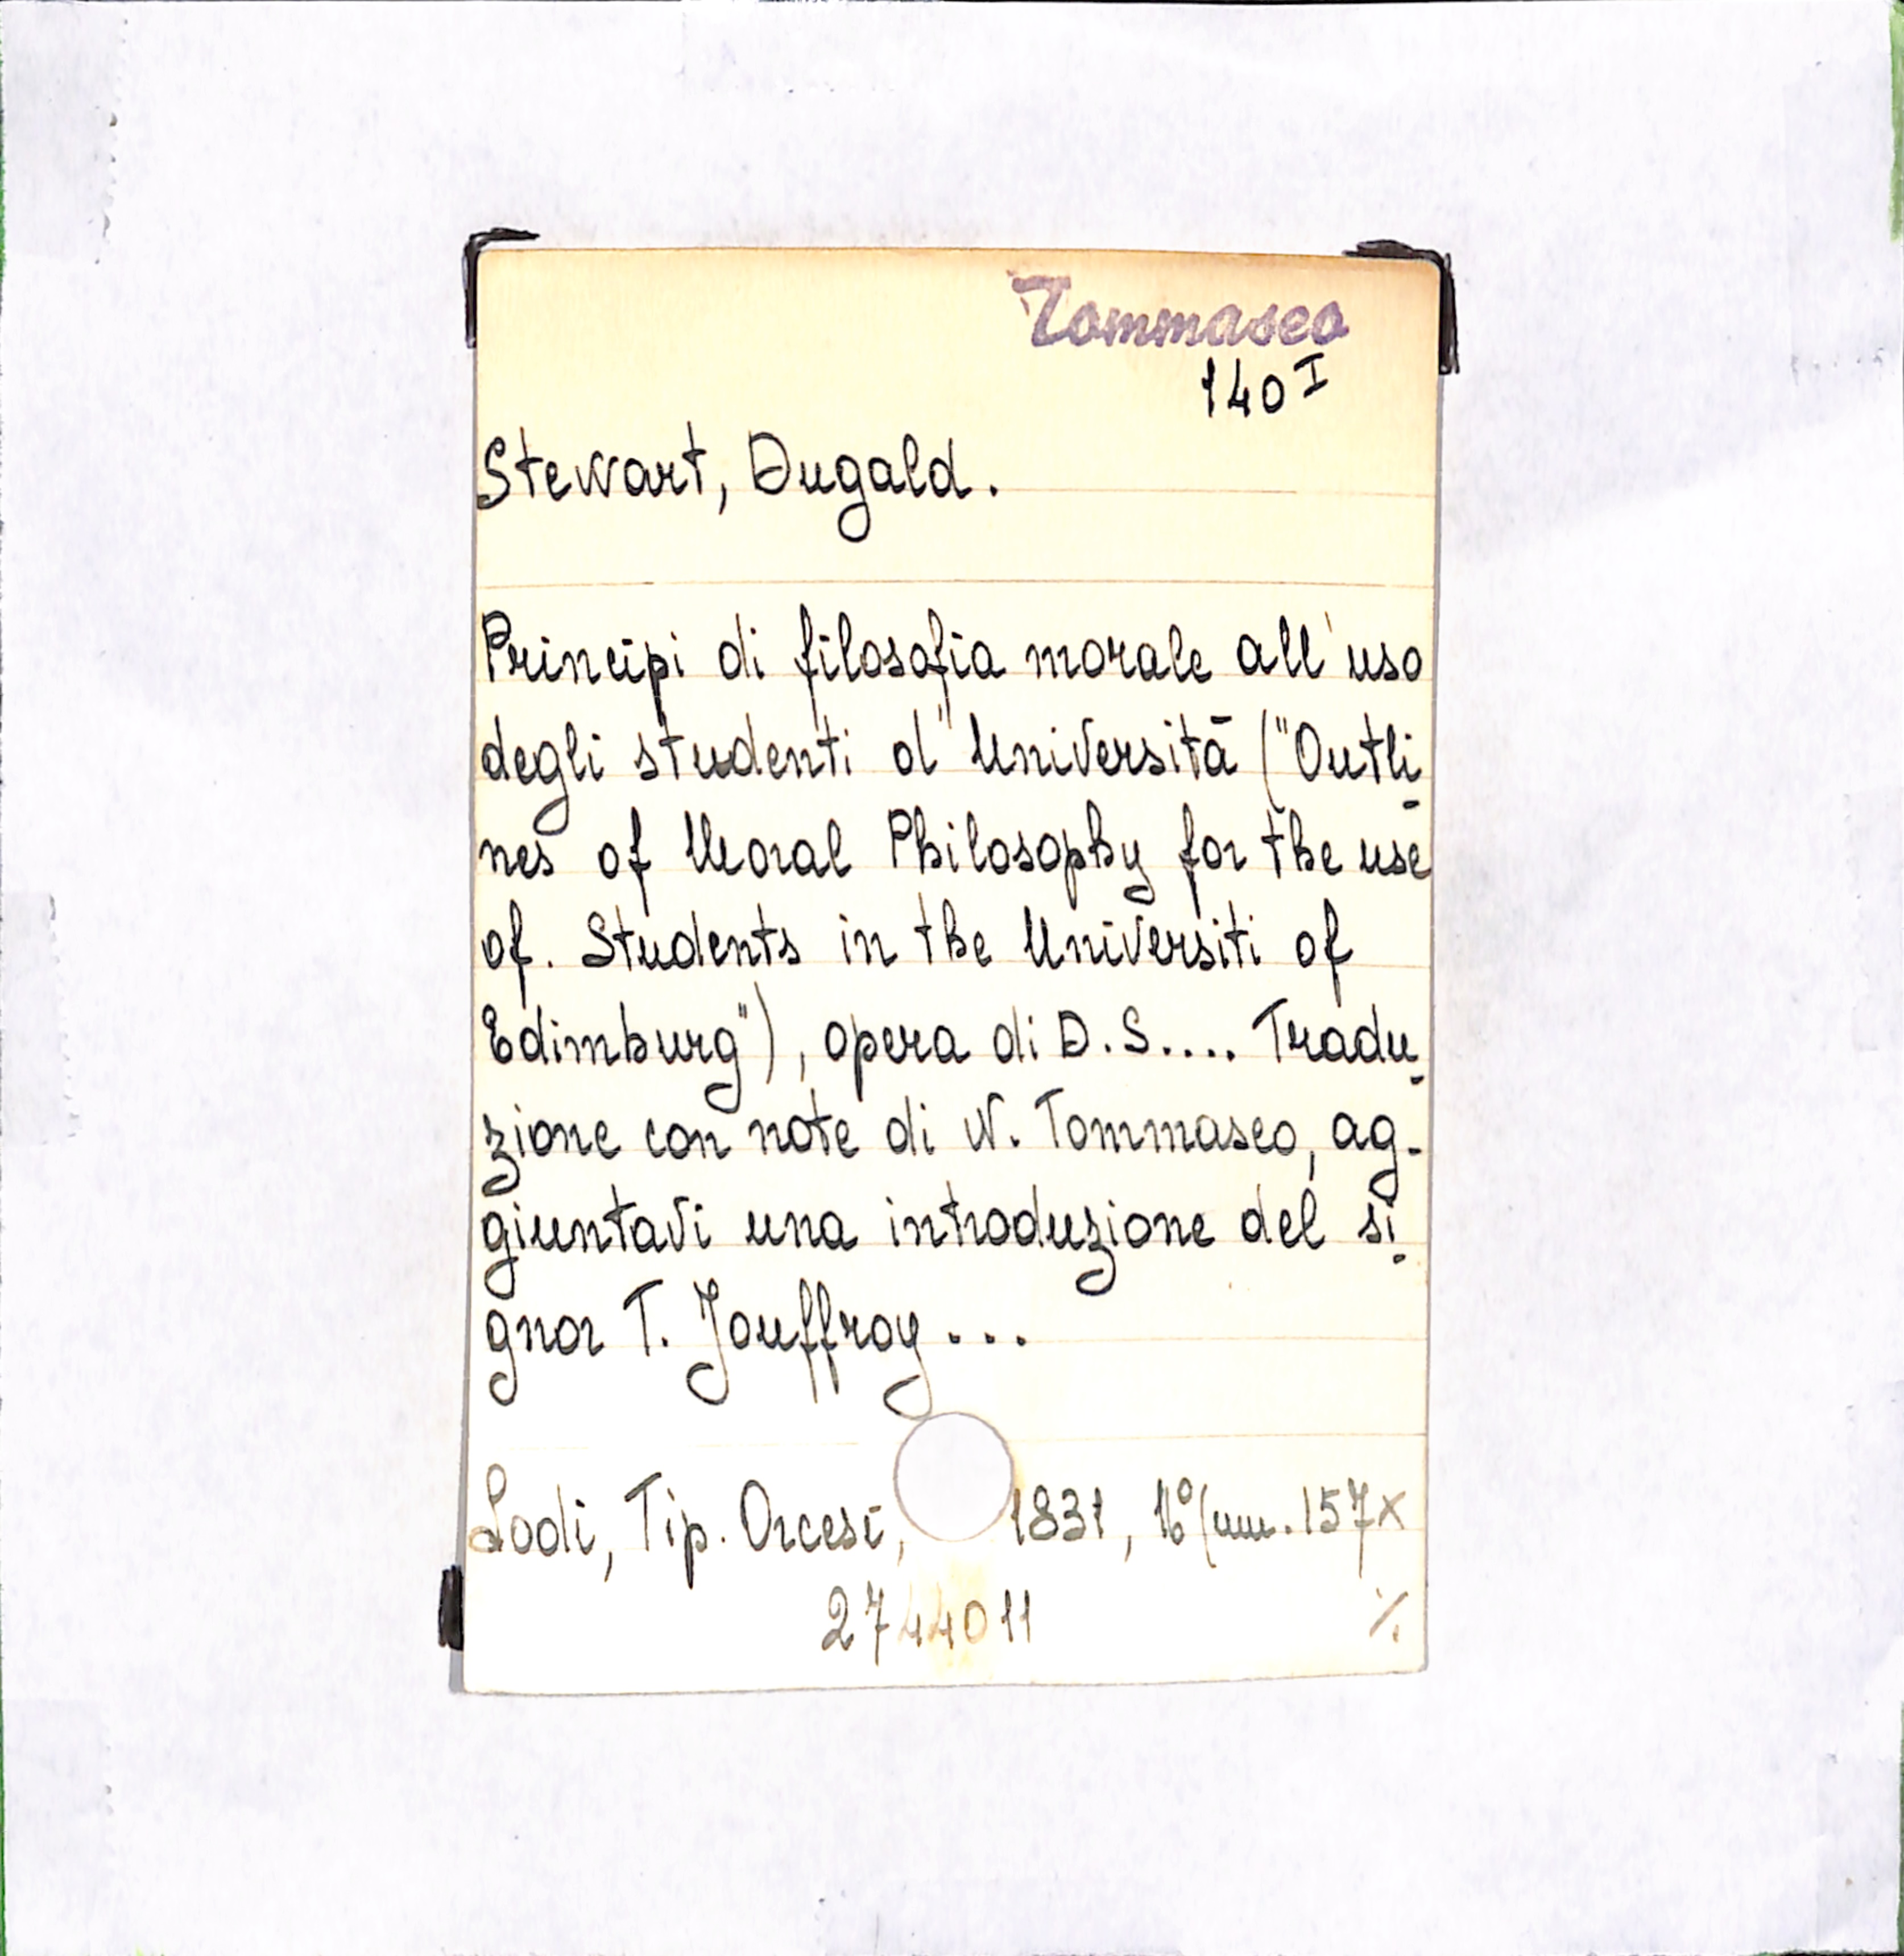 Tommaseo
140 I
Stewart, Dugald.
Principi di filosofia morale all'uso
degli studenti d'Università ("Outli-
nes of Moral Philosophy for the use
of. Students in the Universiti of
Edimburg"), opera di D.S.... Tradu-
zione con note di N. Tommaseo, ag-
giuntavi una introduzione del si-
gnor T. Jouffroy...
Lodi, Tip. Orcesi, 1831, 16° (mm. 157x
2744011 ./.